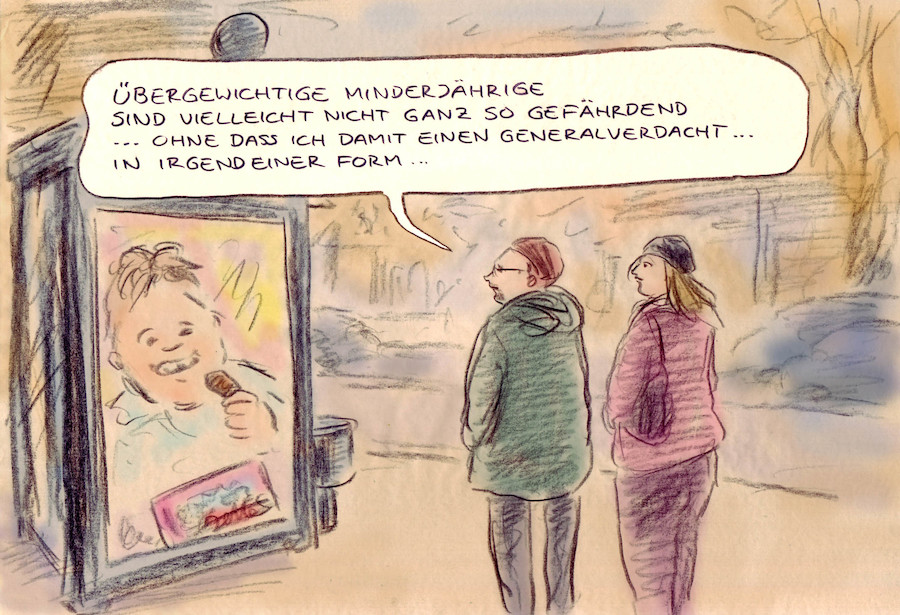 ÜBERGEWICHTIGE MINDERJÄHRIGE
SIND VIELLEICHT NICHT GANZ SO GEFÄHRDEND
... OHNE DASS ICH DAMIT EINEN GENERALVERDACHT ...
IN IRGENDEINER FORM ...